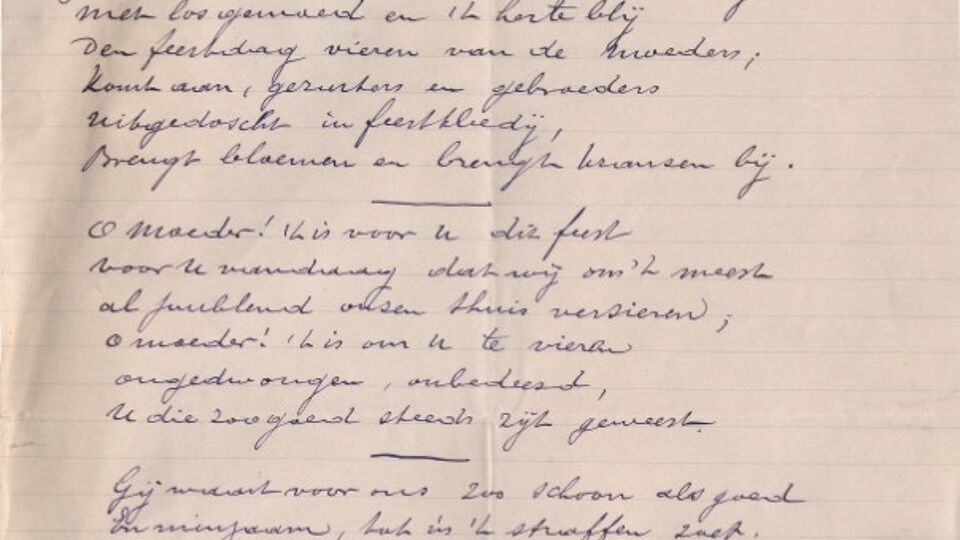 met los gemoed en 't herte blij
Den feestdag vieren van de moeders;
Komt aan, gezusters en gebroeders
Uitgedoscht in feestkledij,
Brengt bloemen en brengt kransen bij.
O Moeder! 't is voor U dit feest
voor U vandaag dat wij om 't meest
al jubelend onzen thuis versieren;
O moeder! 't is om U te vieren
ongedwongen, onbedeesd,
U die zoo goed steeds zijt geweest.
Gij waart voor ons zoo schoon als goed
En minzaam, tot in 't straffen zoet.